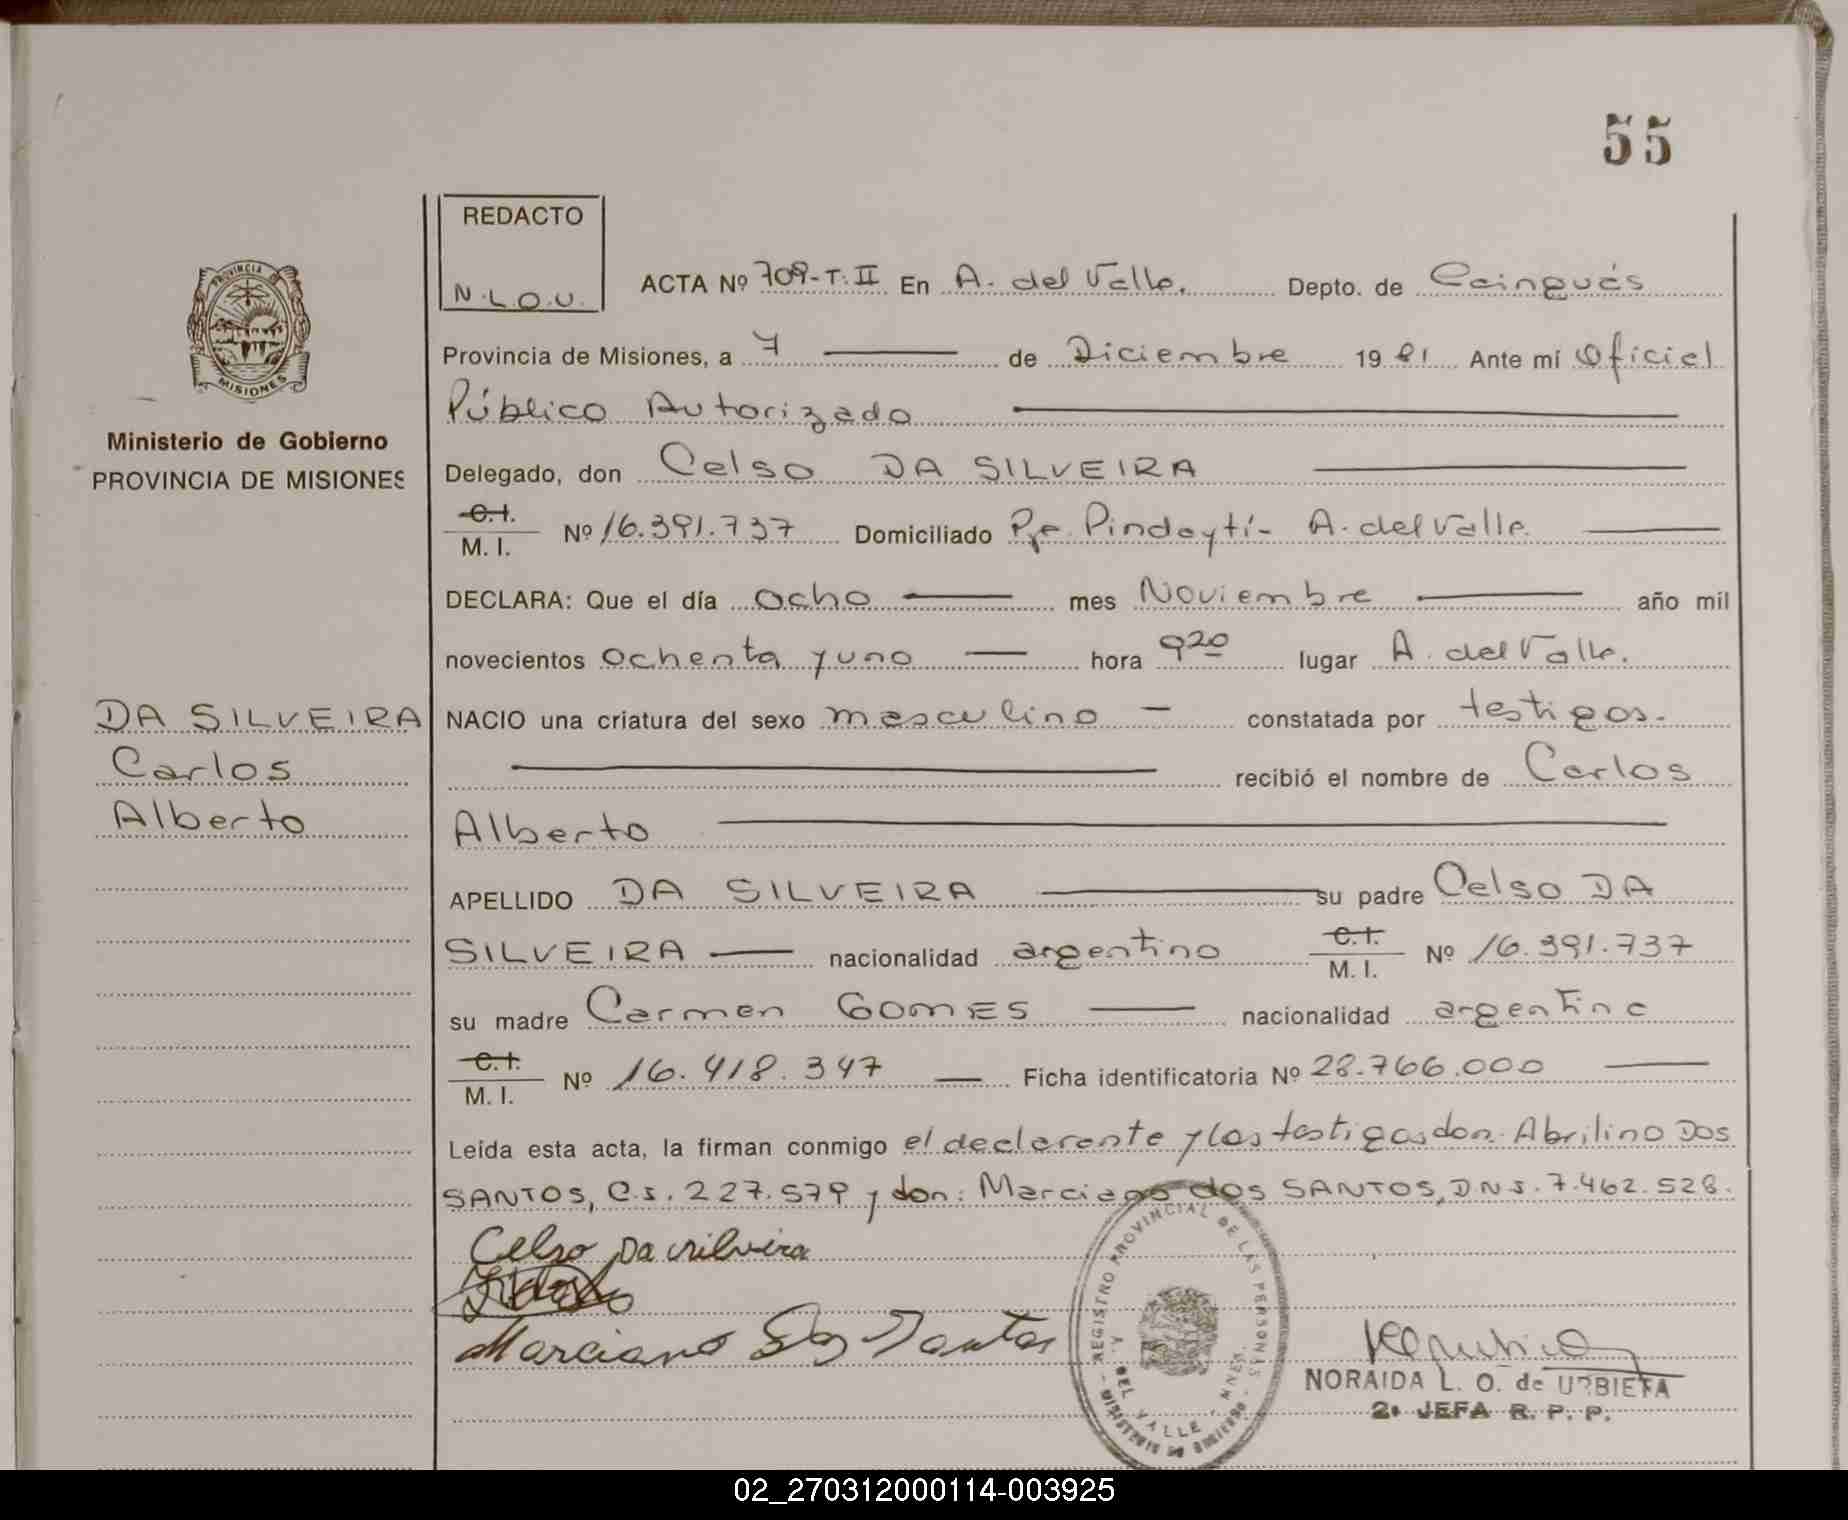 55
REDACTO
N.L.O.U.
ACTA Nº 709-T.II En A. del Valle. Depto. de Cainguás
Provincia de Misiones, a 7 de Diciembre 1981 Ante mí Oficial
Público Autorizado
Delegado, don Celso DA SILVEIRA
C.I.
M. I. Nº 16.391.737 Domiciliado Pje. Pindaytí- A. del Valle.
DECLARA: Que el día ocho mes Noviembre año mil
novecientos ochenta y uno hora 9 20 lugar A. del Valle.
NACIO una criatura del sexo masculino constatada por testigos.
recibió el nombre de Carlos
Alberto
APELLIDO DA SILVEIRA su padre Celso DA
SILVEIRA nacionalidad argentino C.I. M. I. Nº 16.391.737
su madre Carmen GOMES nacionalidad argentina
C.I.
M. I. Nº 16.418.347 Ficha identificatoria Nº 28.766.000
Leída esta acta, la firman conmigo el declarante y los testigos don: Abrilino DOS
SANTOS, C.I. 227.579 y don: Marciano dos SANTOS, D.N.I. 7.462.528.
Celso Da silveira
Marciano Dos Santos
PROVINCIA DE
MISIONES
Ministerio de Gobierno
PROVINCIA DE MISIONES
DA SILVEIRA
Carlos
Alberto
REGISTRO PROVINCIAL DE LAS PERSONAS
DEL VALLE - MNES.
MINISTERIO DE GOBIERNO
NORAIDA L. O. de URBIETA
2ª JEFA R. P. P.
02_270312000114-003925